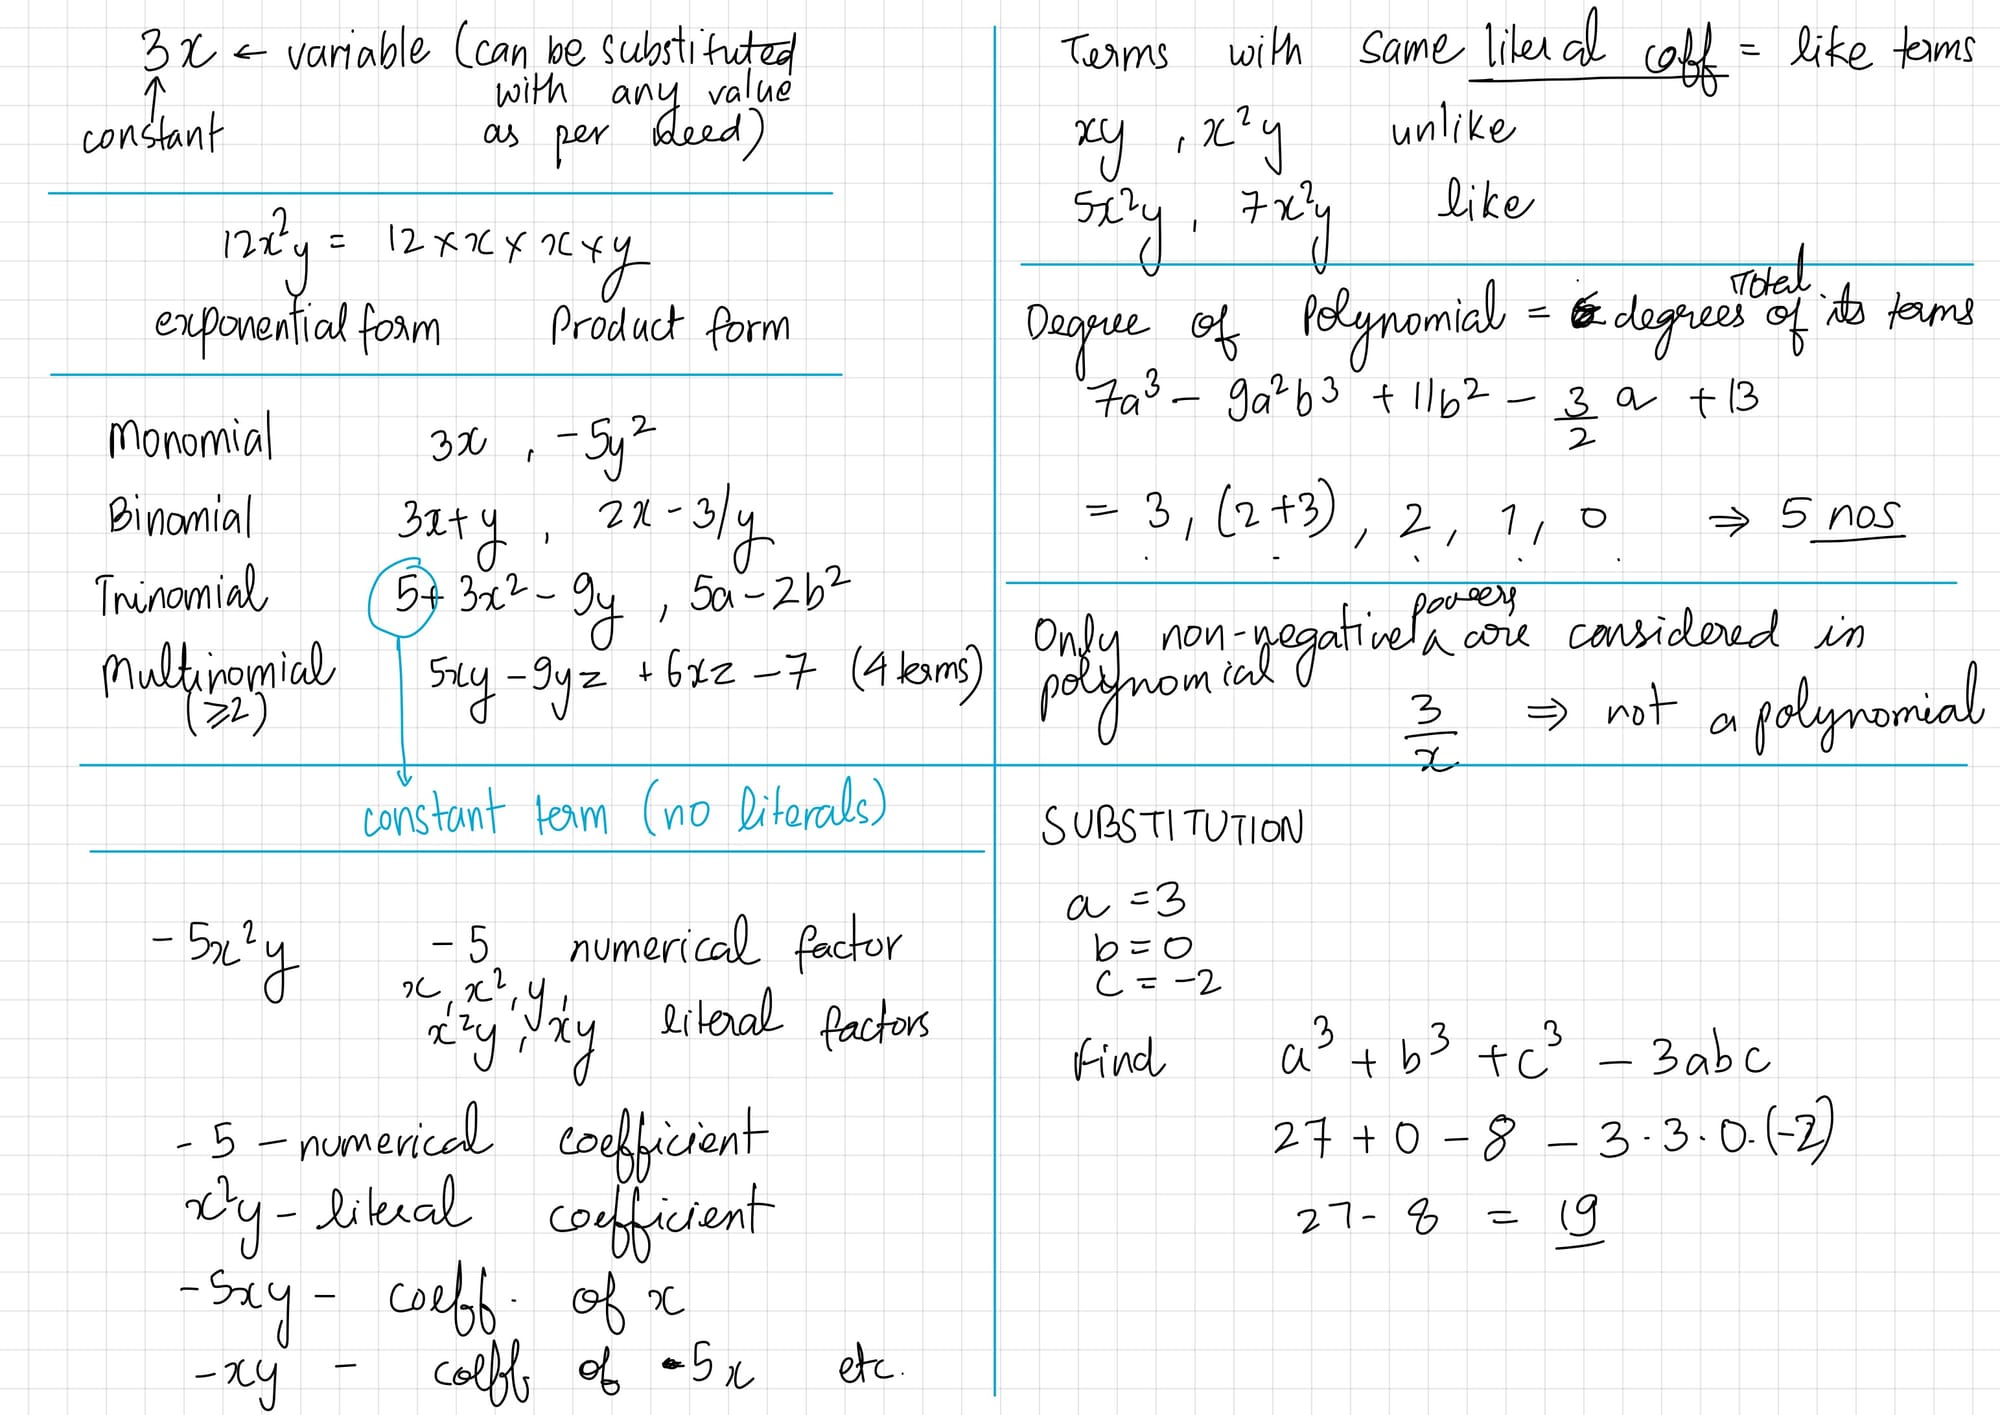 3x ← variable (can be substituted
with any value
as per need)
↑
constant
12x²y = 12 × x × x × y
exponential form Product form
Monomial 3x , -5y²
Binomial 3x+y , 2x - 3/y
Trinomial 5+ 3x² - 9y , 5a - 2b²
Multinomial 5xy - 9yz + 6xz - 7 (4 terms)
(≥2)
constant term (no literals)
-5x²y -5 numerical factor
x, x², y,
x²y, xy literal factors
-5 - numerical coefficient
x²y - literal coefficient
-5xy - coeff. of x
-xy - coeff. of 5x etc.
Terms with same literal coff = like terms
xy , x²y unlike
5x²y , 7x²y like
Total
Degree of Polynomial = degrees of its terms
7a³ - 9a²b³ + 11b² - 3/2 a + 13
= 3, (2+3), 2, 1, 0 ⇒ 5 nos
powers
Only non-negative are considered in
polynomial
3/x ⇒ not a polynomial
SUBSTITUTION
a = 3
b = 0
c = -2
Find a³ + b³ + c³ - 3abc
27 + 0 - 8 - 3·3·0·(-2)
27 - 8 = 19